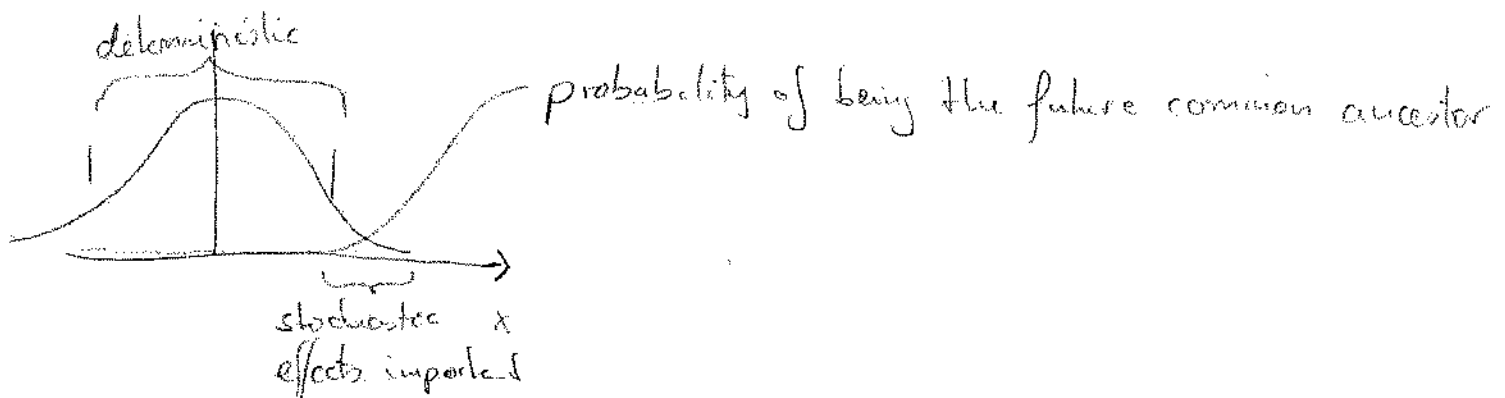 deterministic
probability of being the future common ancestor
stochastic x
effects important